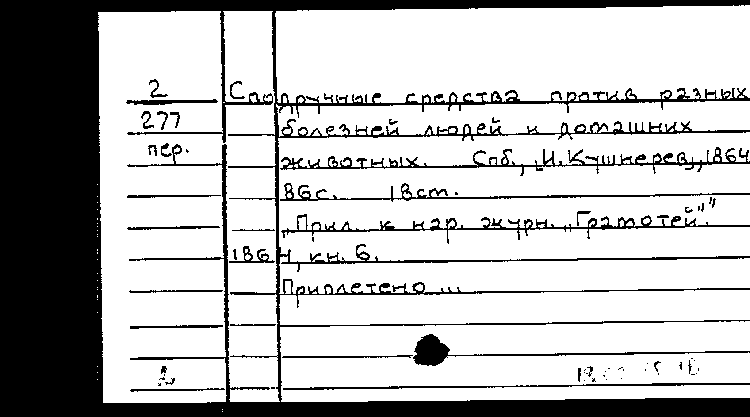 2
277
пер.
Сподручные средства против разных
болезней людей и домашних
животных. Спб., „И. Кушнерев„, 1864
86с. 18см.
„Прил. к нар. журн. „Грамотей"."
1864, кн. 6.
Приплетено ...